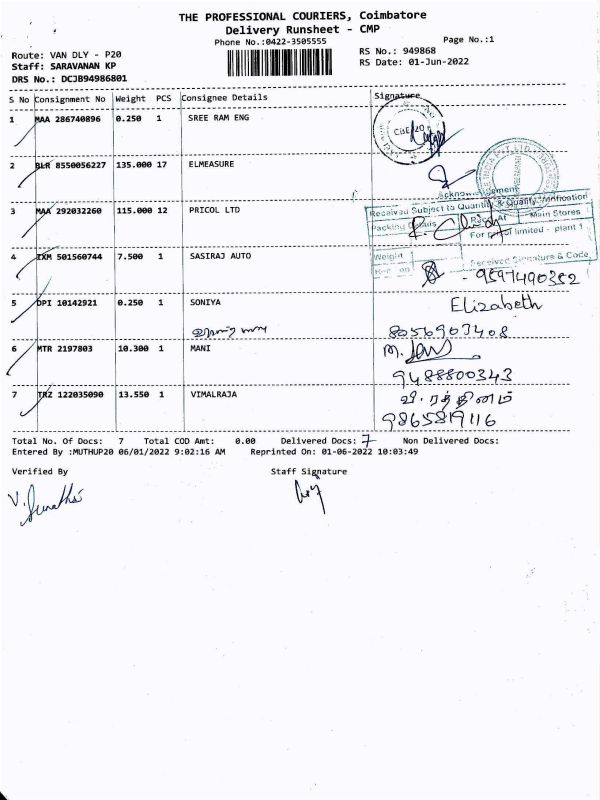 THE PROFESSIONAL COURIERS, Coimbatore
Delivery Runsheet - CMP
Phone No.:0422-3505555
Page No.:1
Route: VAN DLY - P20
Staff: SARAVANAN KP
DRS No.: DCJB94986801
RS No.: 949868
RS Date: 01-Jun-2022
S No Consignment No Weight PCS Consignee Details Signature
1 MAA 286740896 0.250 1 SREE RAM ENG
CBE 20
2 BLR 8550056227 135.000 17 ELMEASURE
Acknowledgement
Received Subject to Quantity & Quality Verification
3 MAA 292032260 115.000 12 PRICOL LTD
Packing Details Main Stores
For pricol limited - plant 1
4 IXM 501560744 7.500 1 SASIRAJ AUTO
Weight Received Signature & Code
9597490352
5 DPI 10142921 0.250 1 SONIYA Elizabeth
8056903408
6 MTR 2197803 10.300 1 MANI
9488800343
7 TRZ 122035090 13.550 1 VIMALRAJA வி. ரத்தினம்
9865819116
Total No. Of Docs: 7 Total COD Amt: 0.00 Delivered Docs: 7 Non Delivered Docs:
Entered By :MUTHUP20 06/01/2022 9:02:16 AM Reprinted On: 01-06-2022 10:03:49
Verified By Staff Signature